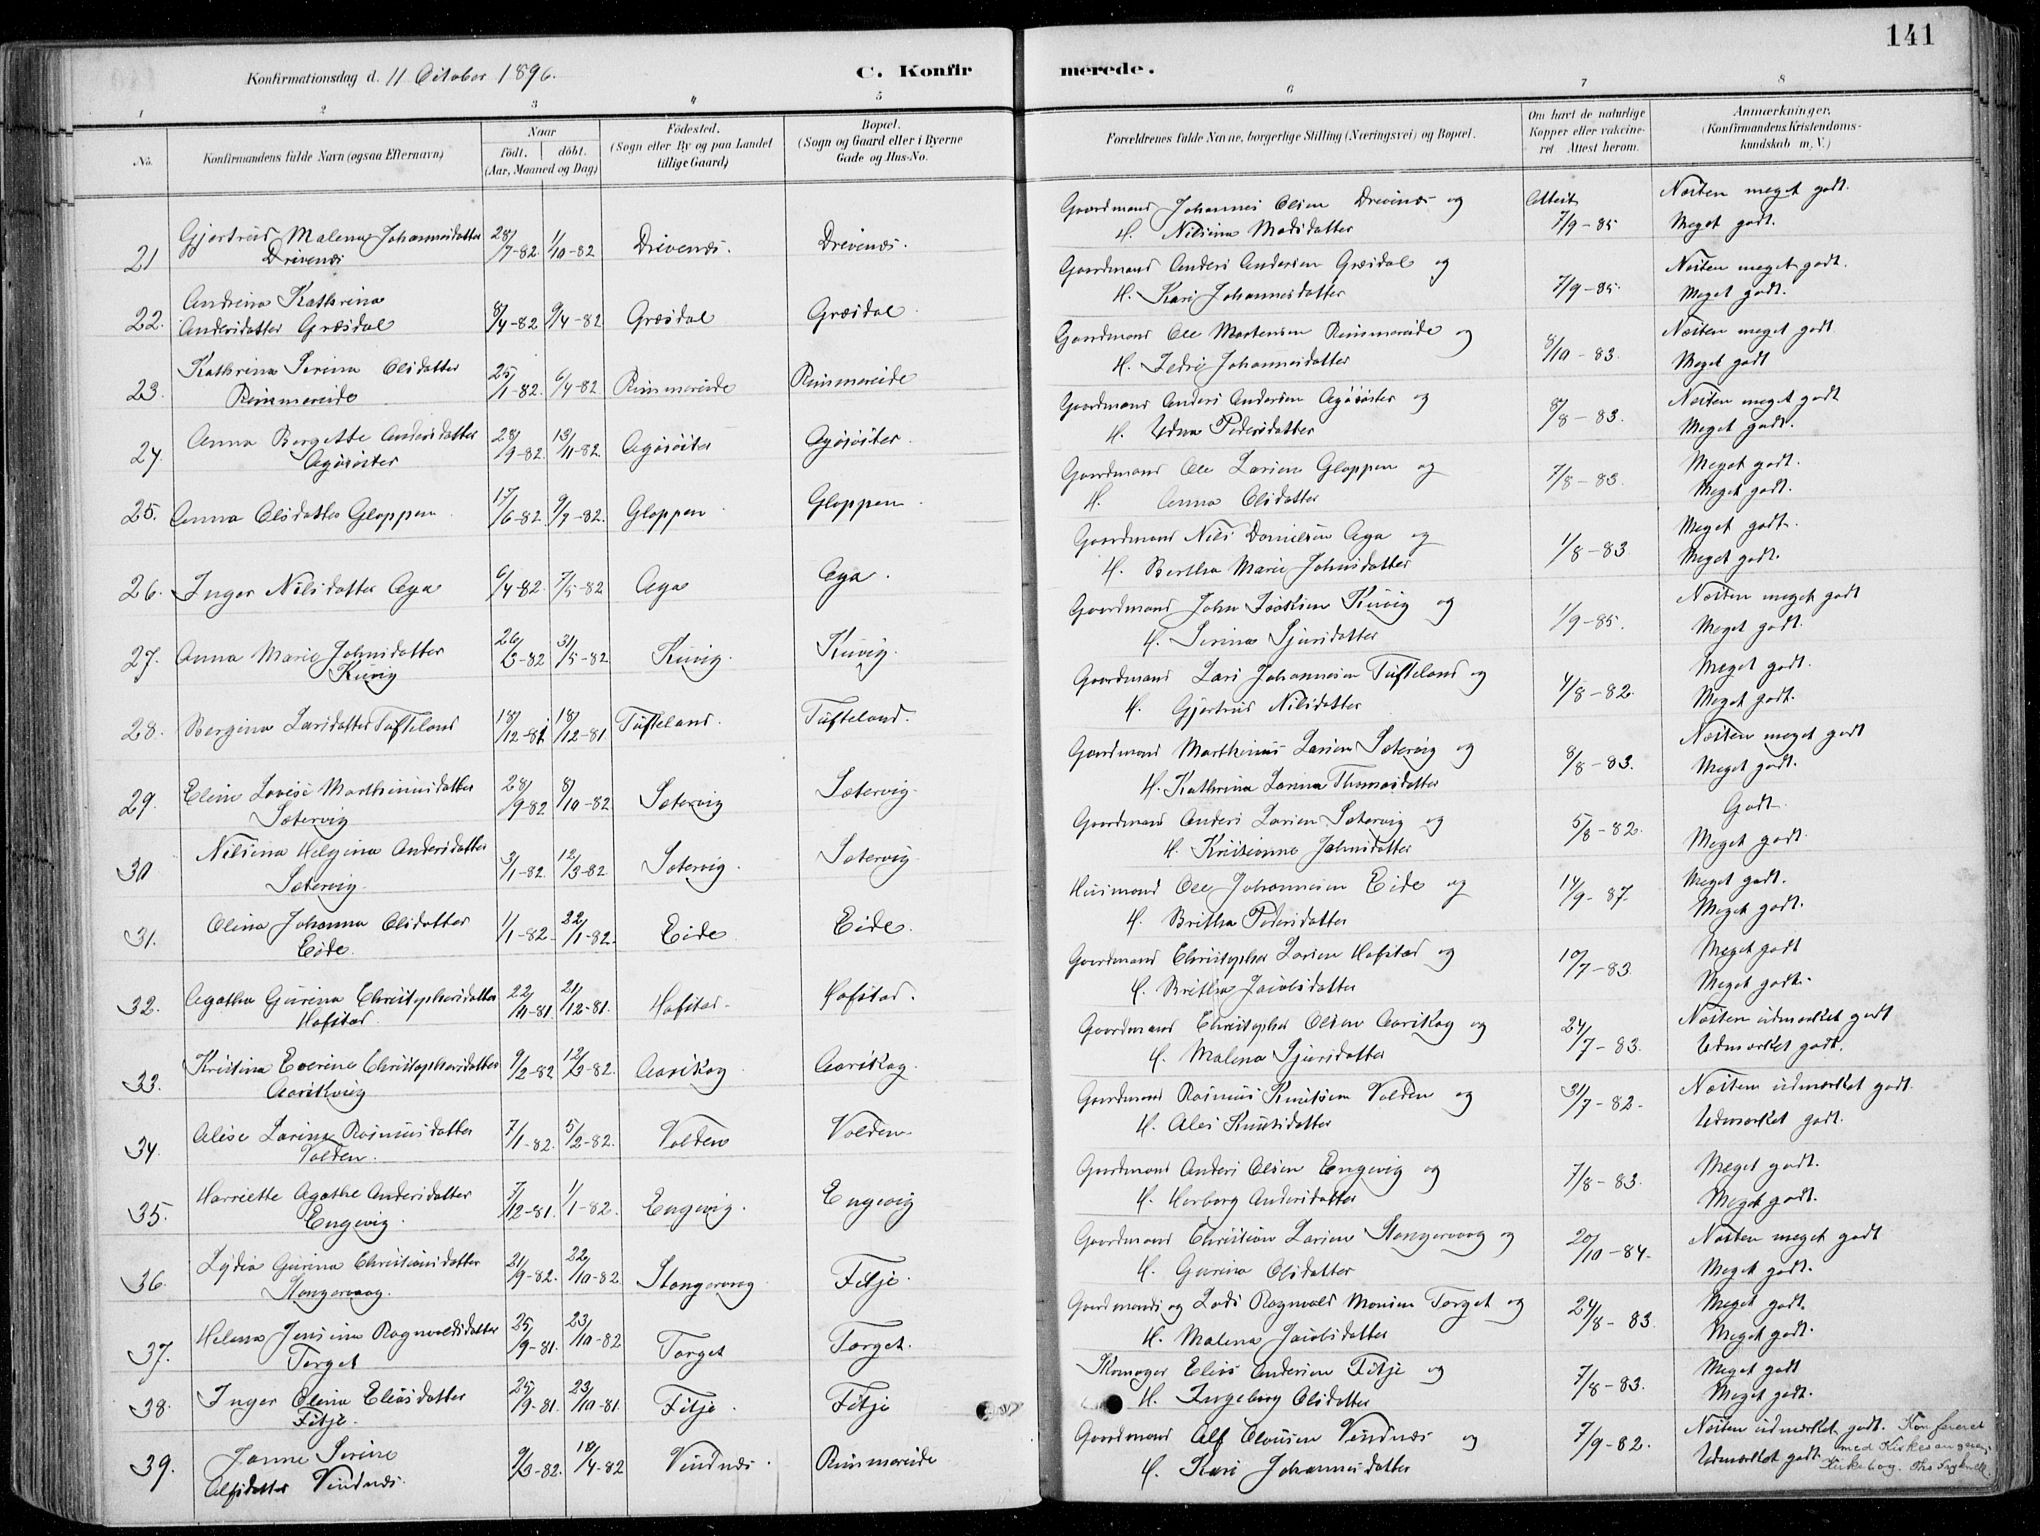 141
Konfirmationsdag d. 11 October 1896.
C. Konfirmerede.
1 2 3 4 5 6 7 8
No.
Konfirmandens fulde Navn (ogsaa Efternavn)
Naar
født. døbt.
(Aar, Maaned og Dag)
Fødested.
(Sogn eller By og paa Landet
tillige Gaard)
Bopæl.
(Sogn og Gaard eller i Byerne
Gade og Hus-No.
Forældrenes fulde Navne, borgerlige Stilling (Næringsvei) og Bopæl.
Om havt de naturlige
Kopper eller vakcine-
ret Attest herom.
Anmærkninger.
(Konfirmandens Kristendoms-
kundskab m. V.)
21 Gjertrud Malena Johannesdatter 28/7-82 1/10-82 Drivenæs. Drivenæs. Gaardmand Johannes Olsen Drivenæs og Attest 7/9-85 Næsten meget godt.
Drivenæs H. Nilsina Madsdatter Meget godt.
22. Andrina Kathrina 8/4-82 9/4-82 Græsdal Græsdal Gaardmand Anders Andersen Græsdal og 7/9-85. Næsten meget godt.
Andersdatter Græsdal H. Kari Johannesdatter Meget godt.
23. Kathrina Serina Olsdatter 25/1-82. 6/4-82 Rimmereide Rimmereide Gaardmand Ole Mortensen Rimmereide og 8/10-83. Næsten meget godt
Rimmereide H. Johannesdatter Meget godt
24. Anna Bergette Andersdatter 28/9-82 13/11-82 Agösöster Agösöster. Gaardmand Anders Andersen Agösöster og 8/8-83. Næsten meget godt
Agösöster H. Edna Pedersdatter Meget godt.
25. Anna Olsdatter Gloppen 17/6-82. 9/7-82. Gloppen Gloppen Gaardmand Ole Larsen Gloppen og 7/8-83. Meget godt.
H. Anna Olsdatter Meget godt.
26. Inger Nilsdatter Aga 6/4-82. 7/5-82 Aga Aga. Gaardmand Nils Danielsen Aga og 1/8-83. Meget godt.
H. Bertha Marie Johnsdatter Meget godt.
27. Anna Marie Johnsdatter 26/3-82 31/5-82 Kuvig. Kuvig. Gaardmand John Kuvig og 1/9-85. Næsten meget godt
Kuvig H. Serina Sjursdatter Meget godt.
28. Bergina Larsdatter Tufteland 18/12-81 18/12-81 Tufteland. Tufteland. Gaardmand Lars Johannesen Tufteland og 4/8-82. Meget godt.
H. Gjertrud Nilsdatter Meget godt.
29. Eline Lovise Marthinusdatter 28/9-82 8/10-82 Sætervig Sætervig. Gaardmand Marthinus Larsen Sætervig og 8/8-83. Næsten meget godt
Sætervig H. Kathrina Larina Thomasdatter Meget godt.
30 Nilsina Helgina Andersdatter 3/1-82 12/3-82 Sætervig. Sætervig Gaardmand Anders Larsen Sætervig og 5/8-82. Godt
Sætervig H. Kristianna Johnsdatter Meget godt.
31. Olina Johanna Olsdatter 1/1-82. 22/1-82. Eide Eide. Husmand Ole Johannesen Eide og 14/9-87. Meget godt.
Eide. H. Britha Pedersdatter Meget godt.
32. Agatha Gurina Christophersdatter 22/11-81. 21/12-81. Hofstad Hofstad. Gaardmand Christopher Larsen Hofstad og 10/7-83. Meget godt
Hofstad H. Britha Jacobsdatter Meget godt.
33. Kristina Everine Christophersdatter 9/2-82 12/2-82. Aarskog Aarskog. Gaardmand Christopher Olsen Aarskog og 24/7-83. Næsten udmærket godt
H. Malena Sjursdatter Udmærket godt.
34. Alise Larine Rasmusdatter 7/1-82. 5/2-82. Volden Volden Gaardmand Rasmus Knutsen Volden og 31/7-82. Næsten udmærket godt.
Volden. H. Ales Knutsdatter Udmærket godt.
35. Harriette Agathe Andersdatter 7/12-81. 1/1-82. Engevig. Engevig Gaardmand Anders Olsen Engevig og 7/8-83. Meget godt.
Engevig. H. Herborg Andersdatter Meget godt.
36. Lydia Gurina Christiansdatter 21/9-82. 22/10-82 Stangervaag Fitje. Gaardmand Christian Larsen Stangervaag og 20/10-84. Næsten meget godt
Stangervaag. H. Gurina Olsdatter Meget godt.
37. Helena Jensina Ragnvaldsdatter 25/9-81. 23/10-82 Torget Torget. Gaardmand og Lods Ragnvald Monsen Torget og 24/8-83. Meget godt.
Torget H. Malena Jacobsdatter Meget godt.
38. Inger Olina Eliasdatter 25/9-81. 23/10-81. Fitje. Fitje Skomager Elias Andersen Fitje og 7/8-83. Meget godt
Fitje. H. Ingeborg Olsdatter Meget godt.
39. Janne Serine 9/3-82. 10/4-82 Vindnæs. Rimmereide Gaardmand Alf Clausen Vindnæs og 7/9-82. Næsten udmærket godt. Konfereret
Alfsdatter Vindnæs. H. Kari Johannesdatter Udmærket godt. med Kirkesangerens
Kirkebog.